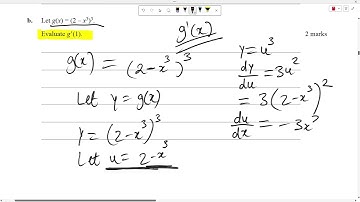 b. Let g(x) = (2 − x³)³.
Evaluate g'(1).
2 marks
g'(x)
g(x) = (2-x³)³
Let y = g(x)
y = (2-x³)³
Let u = 2-x³
y = u³
dy/du = 3u²
= 3(2-x³)²
du/dx = -3x²